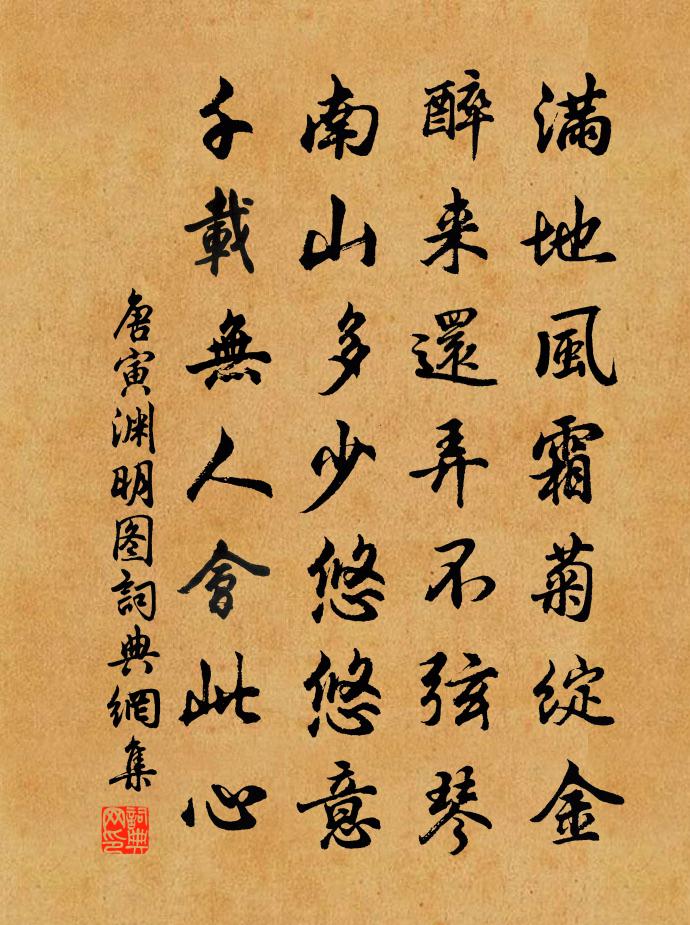 滿地風霜菊綻金
醉来還弄不弦琴
南山多少悠悠意
千載無人會此心
唐寅渊明图詞典網集
詞典网印